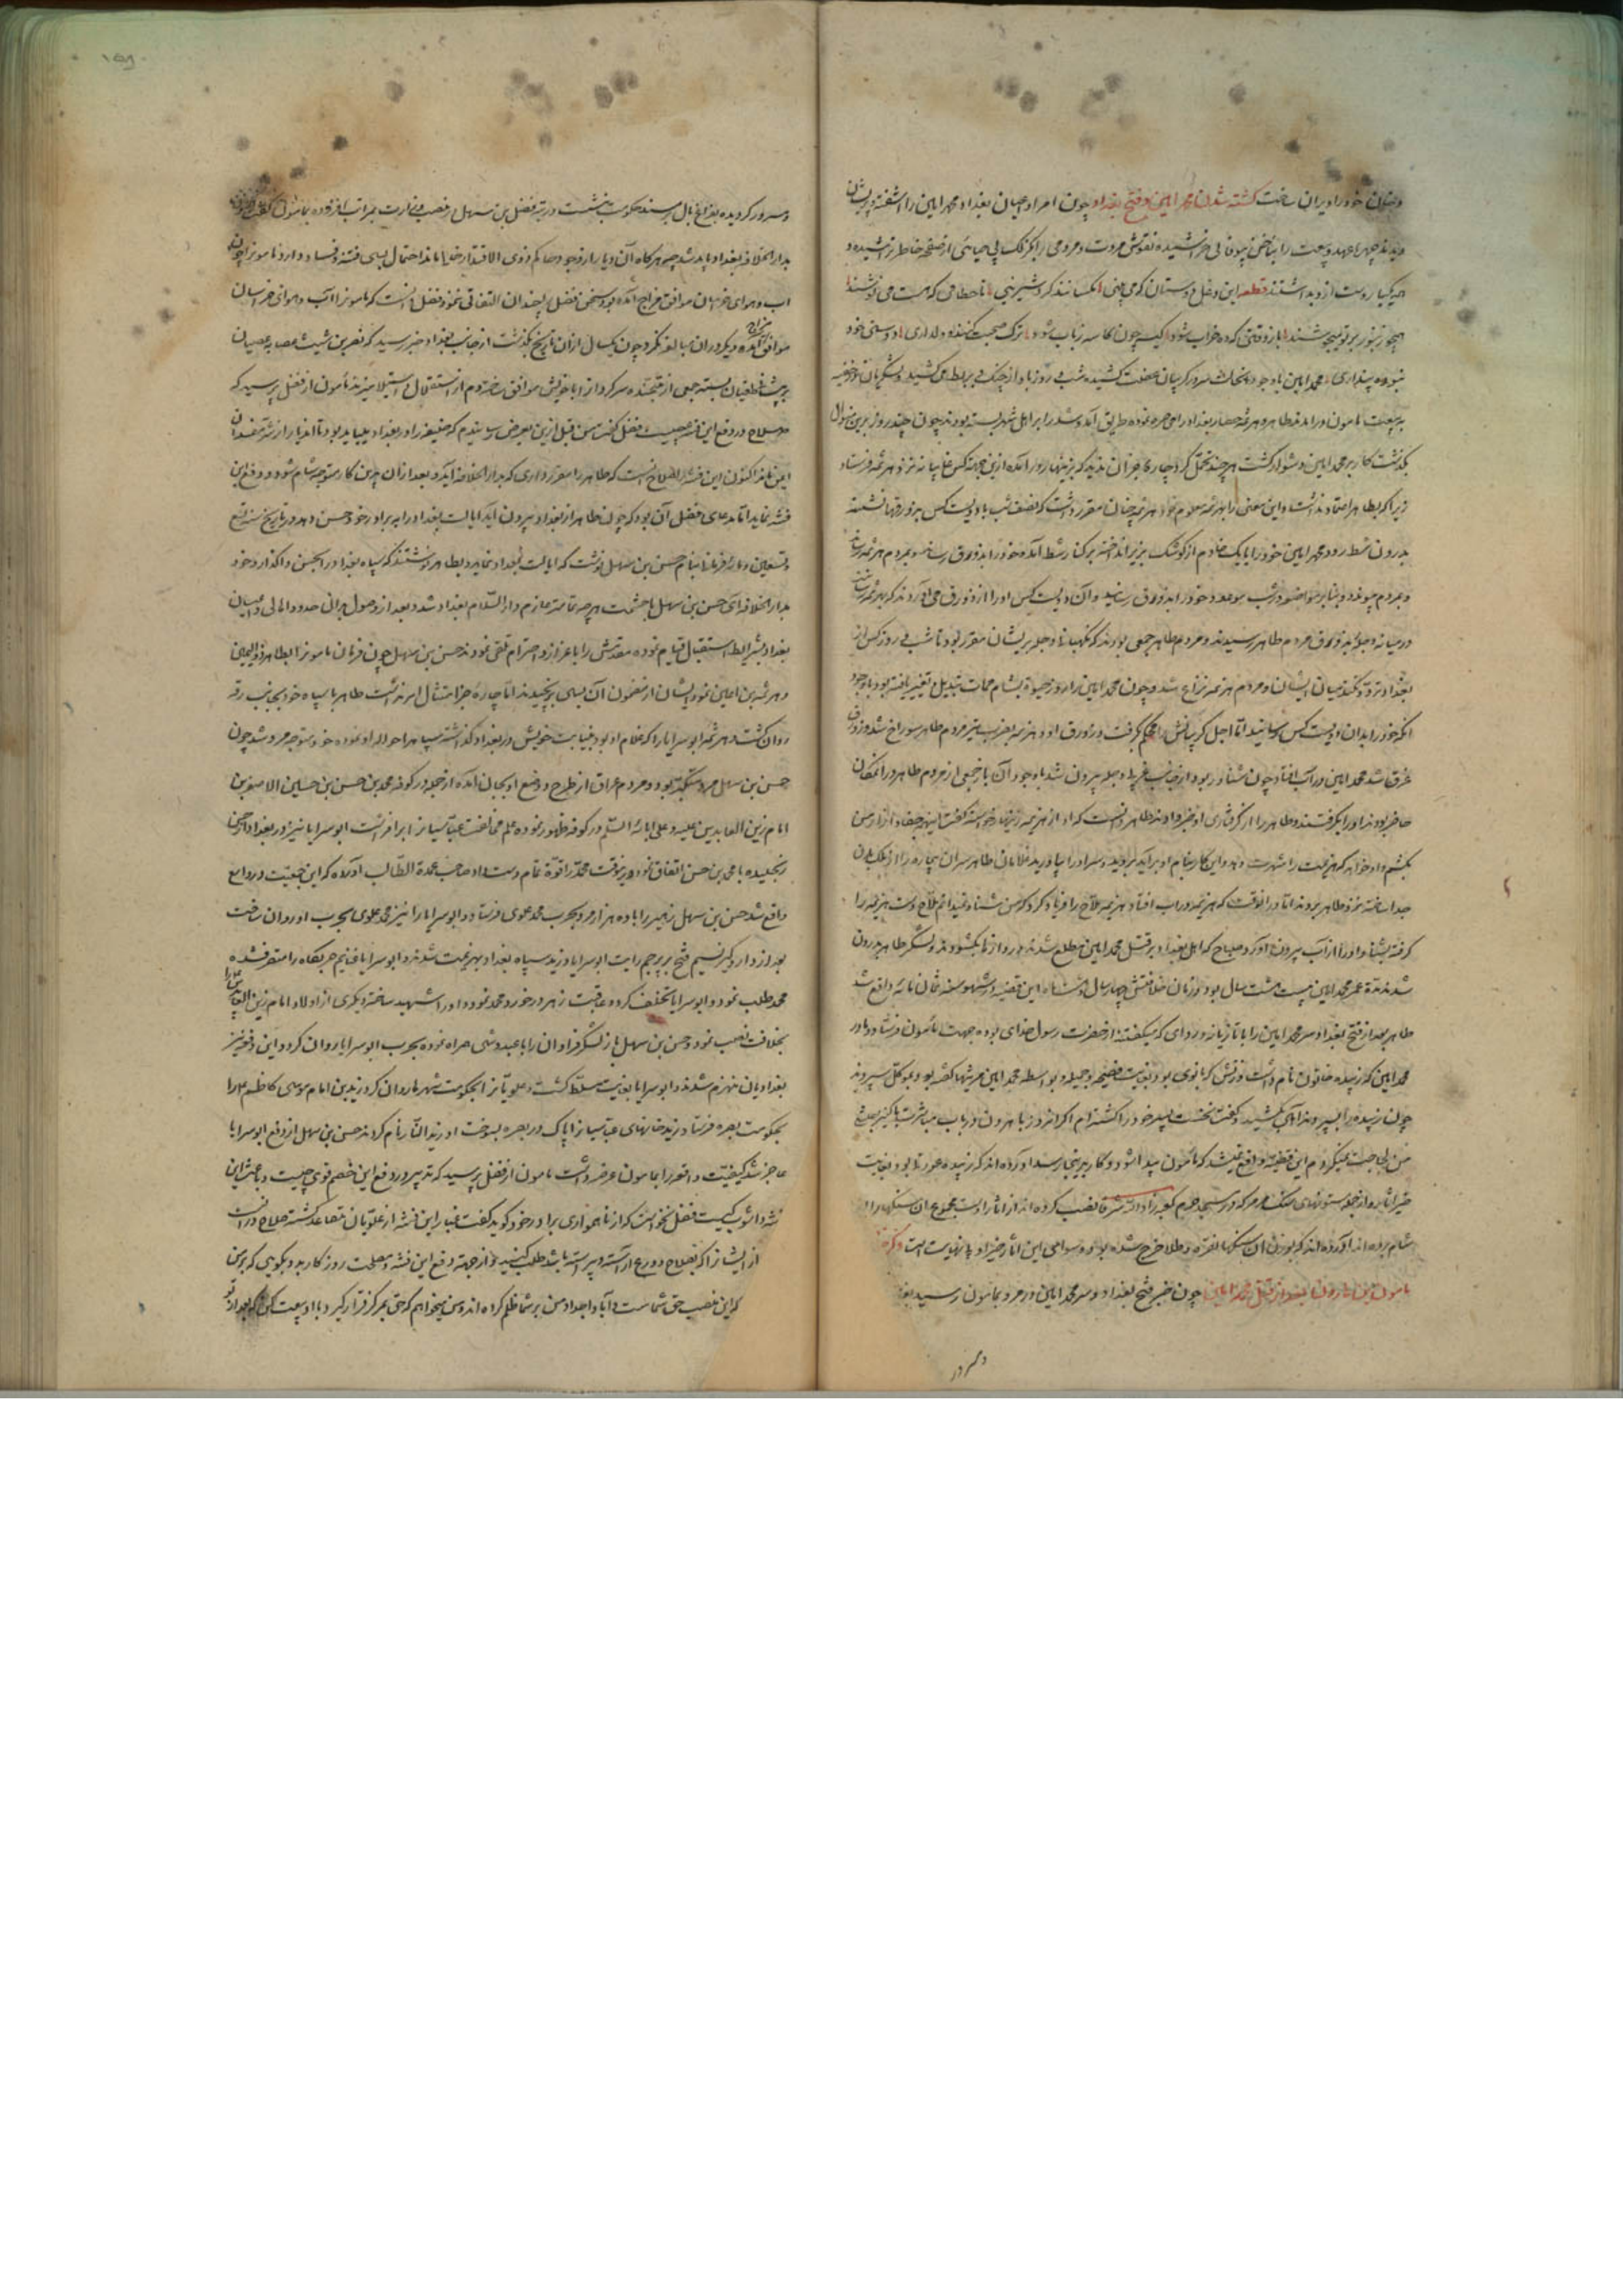 و بنیان خود را ویران ساخت کشته شدن محمد امین و فتح بغداد چون امرا و اعیان بغداد محمد امین را آشفته و پریشان
دیدند چهره عهد و بیعت را بناخن بیوفائی خراشیده نقوش مروت و مردمی را بکزلک بی حیائی از صفحه خاطر تراشیده و
به یکبار دست ازو بداشتند قطعه این دغل دوستان که می بینی مکسانند کرد شیرینی تا حطامی که هست می نوشند
همچو زنبور بر تو میجوشند باز وقتی که ده خراب شود کیسه چون کاسه رباب شود ترک صحبت کنند و دلداری دوستی خود
نبوده پنداری محمد امین با وجود
به بیعت مامون در آمدند طاهر و هرثمه حصار بغداد را
بگذشت کار بر محمد امین دشوار گشت هر چند تحمل کرد چاره جز آن ندید که بزینهار در آمده ازین جهت کس غایبانه نزد هرثمه فرستاد
زیرا که بطاهر اعتماد نداشت و این معنی را بهرثمه معلوم نمود هرثمه چنان مقرر داشت که نصف شب با دویست کس بزورقها نشسته
بدرون شط رود محمد امین خود را با یک خادم از کوشک بزیر انداخته بر کنار شط آمده خود را بزورق رساند و بمردم هرثمه
و بمردم پیوندد و بنابر مواضعه در شب موعود خود را بزورق رسانید و آن دویست کس او را از زورق می آوردند که بهرثمه رسانند
در میانه دجله بزورق مردم طاهر رسیدند و مردم طاهر جمعی بودند که نگهبانی دجله بریشان مقرر بود تا شب و روز کس از
بغداد تردد نکند میان ایشان و مردم هرثمه نزاع شد و چون محمد امین را روز حیوة بشام ممات تبدیل و تغییر یافته بود با وجود
آنکه خود را بدان دویست کس رسانید اما اجل گریبانش محکم گرفت و زورق او و هرثمه بضرب تیر مردم طاهر سوراخ شد و زورق
غرق شد محمد امین در آب افتاد چون شناور بود از جانب غربی دجله بیرون شد با وجود آن باز جمعی از مردم طاهر در آن مکان
حاضر بودند او را بگرفتند و طاهر را از گرفتاری او خبر دادند طاهر دانست که او از هرثمه زینهار خواسته گفت
بکشم و او خواهد که هزیمت را شهرت دهد و این کار بنام او برآید بروید و سر او را بیاورید غلامان طاهر سر آن بیچاره را از ملک بدن
جدا ساخته نزد طاهر بردند اما در آنوقت که هرثمه در آب افتاد هرثمه ملاح را فریاد کرد که من شنا نمیدانم ملاح دست هرثمه را
گرفته بشنا او را از آب بیرون آورد و صباح که اهل بغداد بر قتل محمد امین مطلع شدند دروازها بگشودند و لشکر طاهر بدرون
شدند مدة عمر محمد امین بیست هشت سال بود و زمان خلافتش چهار سال و هشت ماه این قضیه در شهور سنه ثمان مائه واقع شد
طاهر بعد از فتح بغداد سر محمد امین را با تازیانه و ردای که میگفتند از حضرت رسول خدای بوده جهت مأمون فرستاد و مادر
محمد امین که زبیده خاتون نام داشت و زنش که بانوی بود بغایت فصیحه و جمیله و بواسطه محمد امین مرثیها گفته بود بموکل سپردند
چون زبیده را بسپردند آهی بکشید و گفت نخست پسر خود را کشته ام اگر آن روز با هرون در باب مباشرت با کنیز
من لجاجت نمیکردم این قضیه واقع نمیشد که مأمون پیدا شود و کار بدینجا رسد آورده اند که زبیده عورتی بود بغایت
خیر آثار و از جمله ستونهای سنگ مرمر که در مسجد حرم کعبه زادها الله شرفا نصب کرده اند از آثار اوست مجموع آن سنگها را از
شام برده اند آورده اند که بوزن آن سنگها نقره و طلا خرج شده بود و سوای این آثار خیر او بی نهایت است ذکر خلافت
مامون بن هارون بعد از قتل محمد امین چون خبر فتح بغداد و سر محمد امین در مرو بمامون رسید
و سرور
و مسرور گردیده بفراغ بال بر مسند حکومت بنشست و رتبه فضل بن سهل را بمنصب وزارت بمراتب افزوده بمأمون گفت
بدار الخلافه بغداد باید شد چه هرگاه آن دیار از وجود حاکم ذوی الاقتدار خالی ماند احتمال بسی فتنه و فساد دارد و مامون را چون
آب و هوای خراسان موافق مزاج آمده بود بسخن فضل چندان التفاتی ننمود فضل دانست که مامون را آب و هوای خراسان
موافق مزاج آمده دیگر در آن مبالغه نکرد چون یکسال از آن تاریخ بگذشت از جانب بغداد خبر رسید که نصر بن شیث عصابه عصیان
بر پیشانی طغیان بسته جمعی از
صلاح در دفع این فتنه چیست فضل گفت من قبل ازین بعرض رسانیدم که خلیفه را در بغداد میباید بود تا آن دیار از شر مفسدان
ایمن ماند اکنون این فتنه را صلاح آنست که طاهر را مقرر داری که بدار الخلافه آید و بعد از آن بدین کار متوجه شام شود و دفع این
فتنه نماید اما مدعای فضل آن بود که چون طاهر از بغداد بیرون آید ایالت بغداد را به برادر خود حسن دهد و در تاریخ سنه تسع
و تسعین و مائه فرمان بنام حسن بن سهل نوشت که ایالت بغداد نماید و بطاهر نوشتند که سپاه بغداد را بحسن واگذار و خود
بدار الخلافه آی حسن بن سهل با حشمت هر چه تمامتر عازم دار السلام بغداد شد و بعد از وصول بدان حدود اهالی و اعیان
بغداد بشرایط استقبال قیام نموده مقدمش را باعزاز و احترام تلقی نمودند حسن بن سهل چون فرمان مامون را بطاهر ذو الیمینین
و هرثمه بن اعین نمود ایشان از مضمون آن بسی برنجیدند اما چاره جز امتثال امر نداشت طاهر با سپاه خود بجانب رقه
روان گشت و هرثمه ابو سرایا را که غلام او بود بنیابت خویش در بغداد گذاشته سپاه را حواله او نموده خود متوجه مرو شد چون
حسن بن سهل مرد متکبر بود و مردم عراق از طرح و وضع او بجان آمده از جمله در کوفه محمد بن حسن بن حسین الاصغر بن
امام زین العابدین علیه و علی آبائه السلام در کوفه ظهور نموده علم مخالفت عباسیان برافراشت ابو سرایا نیز در بغداد از حسن
رنجیده با محمد بن حسن اتفاق نموده درینوقت محمد را قوة تمام دست داد صاحب عمدة الطالب آورده که این جمعیت در
واقع شد حسن بن سهل زهیر را با ده هزار مرد بحرب محمد علوی فرستاد و ابو سرایا را نیز محمد علوی بحرب او روان ساخت
بعد از دار و گیر نسیم فتح بر پرچم رایت ابو سرایا وزید سپاه بغداد بهزیمت شدند و ابو سرایا غنایم حربگاه را متصرف شده
محمد طلب نمود و ابو سرایا تخلف کرده و عاقبت زهر در خورد محمد نموده او را شهید ساخته و دیگری از اولاد امام زین العابدین را
بخلافت نصب نمود حسن بن سهل باز لشکر فراوان را با عبدوس همراه نموده بحرب ابو سرایا روان کرد و این دفعه نیز
بغدادیان منهزم شدند و ابو سرایا بغایت مسلط گشت و علویانرا بحکومت شهرها روان کرد و زید بن امام موسی کاظم را
بحکومت بصره فرستاد و زید خانهای عباسیان را پاک در بصره بسوخت او را زید النار نام کردند حسن بن سهل از دفع ابو سرایا
عاجز شد کیفیت واقعه را بمامون عرضه داشت مامون از فضل پرسید که تدبیر در دفع این خصم قوی چیست و باعث این
فتنه و آشوب کیست فضل نخواست که از ناهمواری برادر خود گوید گفت غبار این فتنه از علویان متصاعد گشته صلاح در آنست
از ایشان آنرا که بصلاح و ورع آراسته و پیراسته باشد طلب کنید و از جهت دفع این فتنه و مصلحت روزگار بدو بگویی که بر من
که این منصب حق شماست و آبا و اجداد من بر شما ظلم کرده اند و من میخواهم که حق بمرکز قرار گیرد و با او بیعت کن که بعد از تو